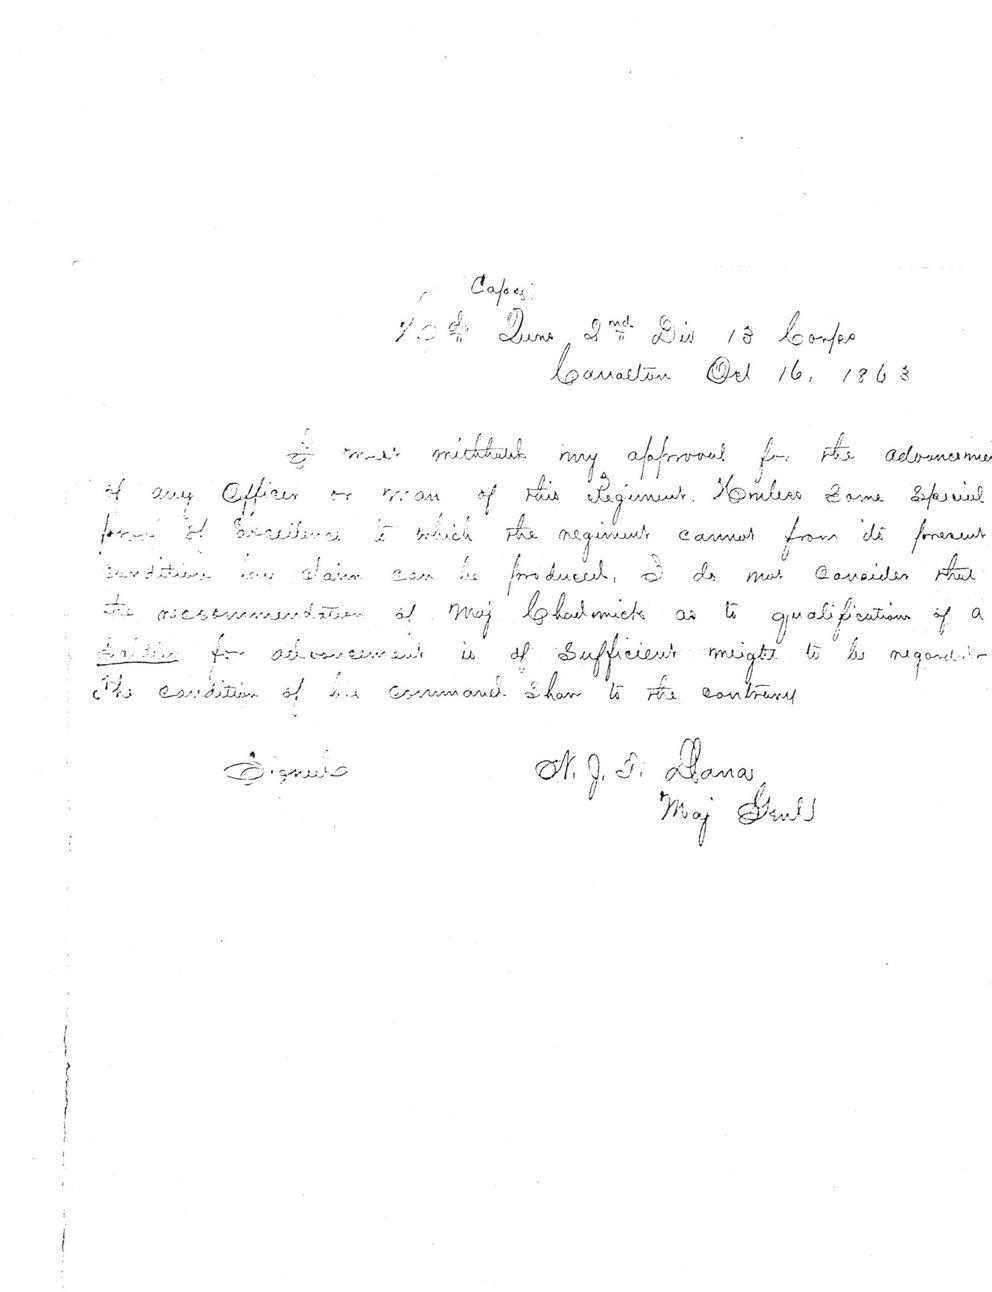 Copy
Hd Qurs 2nd Div 13 Corps
Carrollton Oct 16, 1863
I must withhold my approval for the advancemen
of any Officer or man of this Regiment. Unless Some Special
proof of Excellence to which the regiment cannot from its present
condition lay claim can be produced. I do not Consider that
the recommendation of Maj Chadwick as to qualification of a
Soldier for advancement is of Sufficient weight to be regarded
The condition of his command Shows to the contrary
Signed N. J. T. Dana
Maj Genl